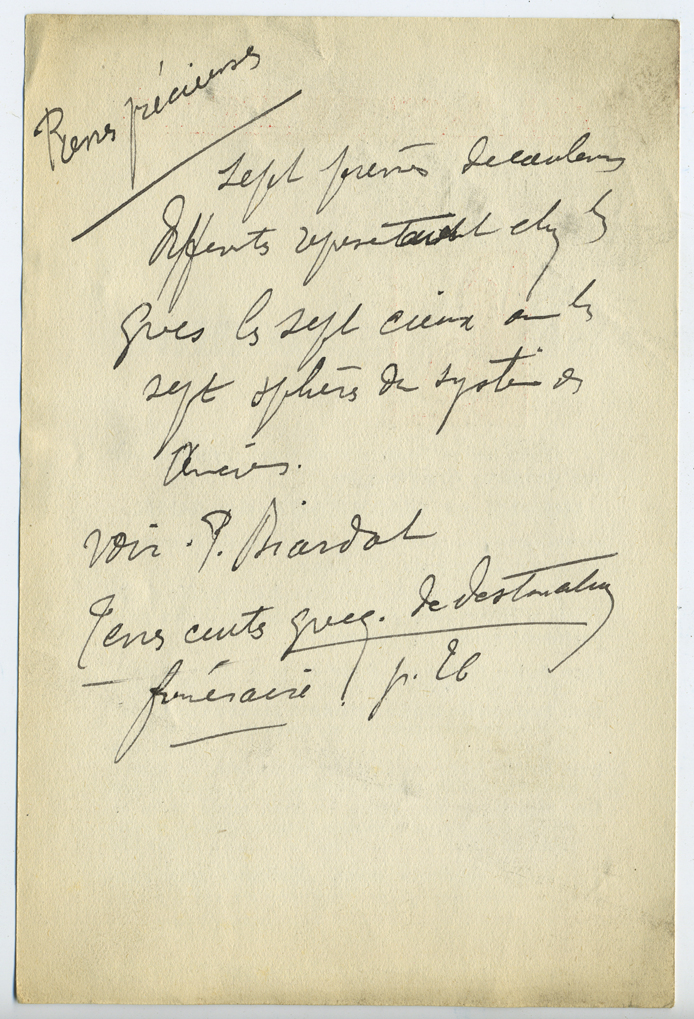 Pierres précieuses
Sept pierres de couleurs
différents représentant chez les
grecs les sept cieux ou les
sept sphères du système des
Anciens.
voir . P. Biardot
Terres cuites grecq. de destination
funéraire, p. 26